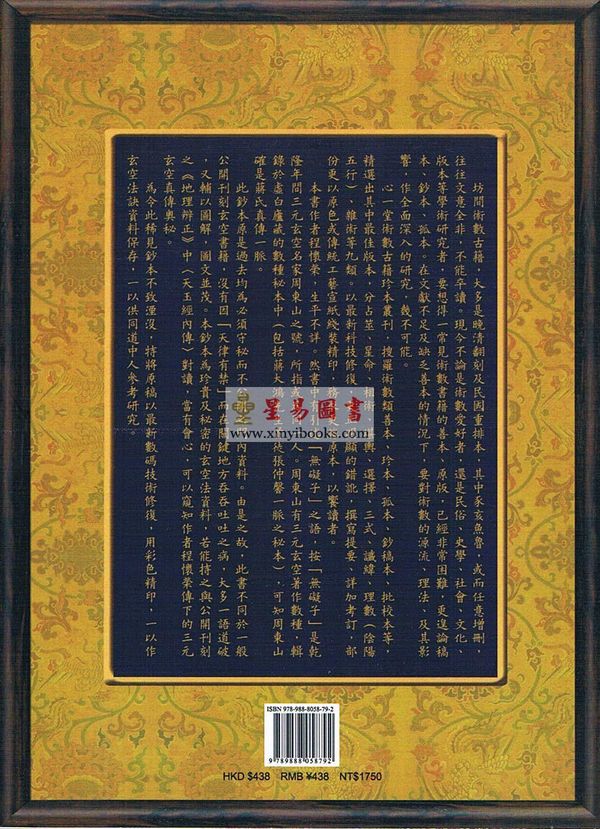 坊間術數古籍，大多是晚清翻刻及民國重排本，其中豕亥魚魯，或而任意增刪，
往往文意全非，不能卒讀。現今不論是術數愛好者，還是民俗、史學、社會、文化、
版本等學術研究者，要想得一常見術數書籍的善本、原版，已經非常困難，更遑論稿
本、鈔本、孤本。在文獻不足及缺乏善本的情況下，要對術數的源流、理法、及其影
響，作全面深入的研究，幾不可能。
心一堂術數古籍珍本叢刊，搜羅術數類善本、珍本、孤本、鈔稿本、批校本等，
精選出其中最佳版本，分占筮、星命、相術、堪輿、選擇、三式、讖緯、理數（陰陽
五行）、雜術等九類。以最新科技修復，顯的錯訛，撰寫提要，詳加考訂，部
份更以原色或傳統工藝宣紙綫裝精印，務原本，以饗讀者。
本書作者程懷榮，生平不詳。然書中引「無礙子」之語，按「無礙子」是乾
隆年間三元玄空名家周東山之號，所指人。周東山有三元玄空著作數種，輯
錄於虛白廬藏的數種秘本中（包括蔣大鴻徒張仲馨一脈之秘本），可知周東山
確是蔣氏真傳一脈。
此鈔本原是過去均為必須守秘而不內資料。由是之故，此書不同於一般
公開刊刻玄空書籍，沒有因「天律有禁」而在關鍵地方吞吞吐吐之病，大多一語道破
，又輔以圖解，圖文並茂。本鈔本為珍貴及秘密的玄空法資料，若能持之與公開刊刻
之《地理辨正》中〈天玉經內傳〉對讀，當有會心，可以窺知作者程懷榮傳下的三元
玄空真傳奧秘。
為令此稀見鈔本不致湮沒，特將原稿以最新數碼技術修復，用彩色精印，一以作
玄空法訣資料保存，一以供同道中人參考研究。
星易圖書
www.xinyibooks.com
ISBN 978-988-8058-79-2
9 789888 058792
HKD $438 RMB ¥438 NT$1750